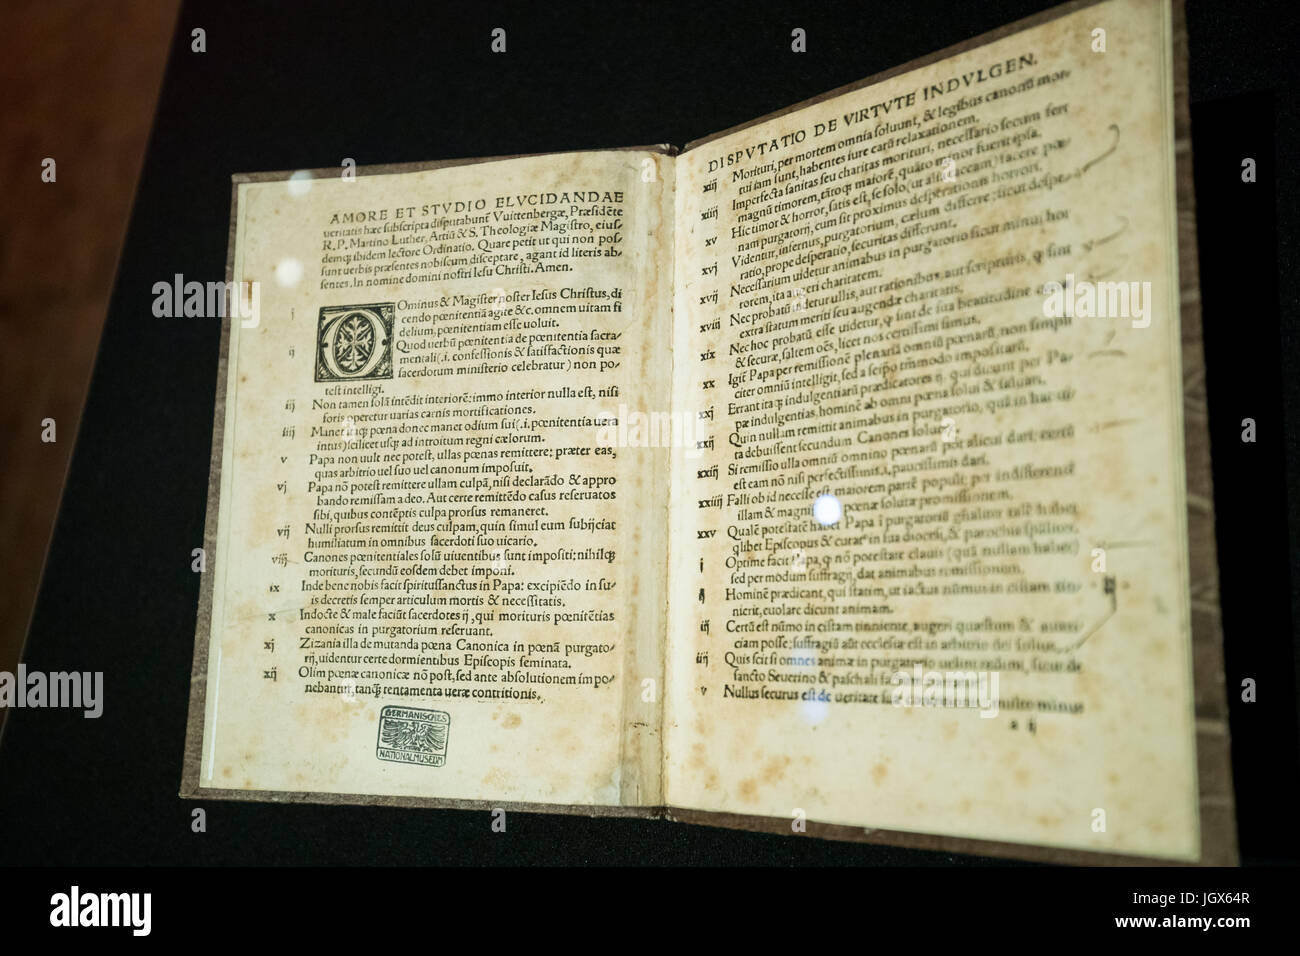 AMORE ET STVDIO ELVCIDANDAE
ueritatis hæc subscripta disputabunt̃ Vuittenbergæ, Præsidẽte
R. P. Martino Luther, Artiũ & S. Theologiæ Magistro, eius-
demq; ibidem lectore Ordinatio. Quare petit ut qui non pos-
sunt uerbis præsentes nobiscum disceptare, agant id literis ab-
sentes. In nomine domini nostri Iesu Christi. Amen.
j DOminus & Magister noster Iesus Christus, di
cendo pœnitentiã agite &c. omnem uitam fi
delium, pœnitentiam esse uoluit.
ij Quod uerbũ pœnitentia de pœnitentia sacra-
mentali (.i. confessionis & satisfactionis quæ
sacerdotum ministerio celebratur) non po-
test intelligi.
iij Non tamen solã intẽdit interiorẽ: immo interior nulla est, nisi
foris operetur uarias carnis mortificationes.
iiij Manet itaq; pœna donec manet odium sui (.i. pœnitentia uera
intus) scilicet usq; ad introitum regni cælorum.
v Papa non uult nec potest, ullas pœnas remittere: præter eas,
quas arbitrio uel suo uel canonum imposuit.
vj Papa nõ potest remittere ullam culpã, nisi declarãdo & appro
bando remissam a deo. Aut certe remittẽdo casus reseruatos
sibi, quibus contẽptis culpa prorsus remaneret.
vij Nulli prorsus remittit deus culpam, quin simul eum subijciat
humiliatum in omnibus sacerdoti suo uicario.
viij Canones pœnitentiales solũ uiuentibus sunt impositi: nihilq;
morituris, secundũ eosdem debet imponi.
ix Inde bene nobis facit spiritussanctus in Papa: excipiẽdo in su-
is decretis semper articulum mortis & necessitatis.
x Indocte & male faciũt sacerdotes ij, qui morituris pœnitẽtias
canonicas in purgatorium reseruant.
xj Zizania illa de mutanda pœna Canonica in pœnã purgato-
rij, uidentur certe dormientibus Episcopis seminata.
xij Olim pœnæ canonicæ nõ post, sed ante absolutionem impo
nebantur, tanq̃ tentamenta ueræ contritionis.
GERMANISCHES
NATIONALMUSEUM
DISPVTATIO DE VIRTVTE INDVLGEN.
xiij Morituri, per mortem omnia soluunt, & legibus canonũ mor-
tui iam sunt, habentes iure earũ relaxationem.
xiiij Imperfecta sanitas seu charitas morituri, necessario secum fert
magnũ timorem, tãtoq; maiorẽ, quãto minor fuerit ipsa.
xv Hic timor & horror, satis est, se solo (ut alia taceam) facere pœ-
nam purgatorij, cum sit proximus desperationis horrori.
xvj Videntur, infernus, purgatorium, cælum differre: sicut despe-
ratio, prope desperatio, securitas differunt.
xvij Necessarium uidetur animabus in purgatorio sicut minui hor
torem, ita augeri charitatem.
xviij Nec probatũ uidetur ullis, aut rationibus, aut scripturis, q̃ sint
extra statum meriti seu augendæ charitatis.
xix Nec hoc probatũ esse uidetur, q̃ sint de sua beatitudine certæ
& securæ, saltem oẽs, licet nos certissimi simus.
xx Igit̃ Papa per remissionẽ plenariã omniũ pœnarũ, non simpli
citer omniũ intelligit, sed a seipo tm̃modo impositarũ.
xxj Errant itaq; indulgentiarũ prædicatores ij, qui dicunt per Pa-
pæ indulgentias, hominẽ ab omni pœna solui & saluari.
xxij Quin nullam remittit animabus in purgatorio, quã in hac ui-
ta debuissent secundum Canones soluere.
xxiij Si remissio ulla omniũ omnino pœnarũ pọt alicui dari: certũ
est eam nõ nisi perfectissimis .i. paucissimis dari.
xxiiij Falli ob id necesse est maiorem partẽ populi: per indifferentẽ
illam & magnificã pœnæ solutæ promissionem.
xxv Qualẽ potestatẽ habet Papa ĩ purgatoriũ gñaliter talẽ habet
quilibet Episcopus & curat⁹ in sua diocesi, & parochia spãliter.
j Optime facit Papa, q̃ nõ potestate clauis (quã nullam habet)
sed per modum suffragij, dat animabus remissionem.
ij Hominẽ prædicant, qui statim, ut iactus nũmus in cistam tin-
nierit, euolare dicunt animam.
iij Certũ est nũmo in cistam tinniente, augeri quæstum & auari-
ciam posse: suffragiũ aũt ecclesiæ est in arbitrio dei solius.
iiij Quis scit si omnes animæ in purgatorio uelint redimi, sicut de
sancto Seuerino & paschali factum narratur.
v Nullus securus est de ueritate suæ contritionis, multo minus
a ij
alamy
JGX64R
www.alamy.com